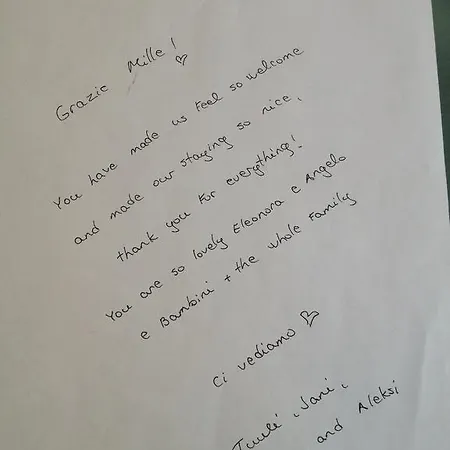 Grazie Mille! ♡
You have made us feel so welcome
and made our staying so nice,
thank you for everything!
You are so lovely Eleonora e Angelo
e Bambini + the whole family
Ci vediamo ♡
Juuli, Jani,
and Aleksi